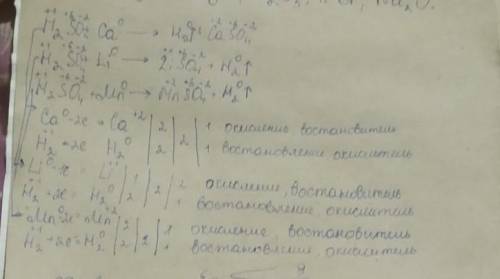 H₂⁺¹S⁺⁶O₄⁻² Ca⁰ → H₂⁰↑ Ca⁺²S⁺⁶O₄⁻²
H₂⁺¹S⁺⁶O₄⁻² + Li⁰ → Li₂⁺¹S⁺⁶O₄⁻² + H₂⁰↑
H₂⁺¹S⁺⁶O₄⁻² + Mn⁰ → Mn⁺²S⁺⁶O₄⁻² + H₂⁰↑
Ca⁰ -2e = Ca⁺² | 2 | 2 | 1 окисление востановитель
H₂⁺¹ +2e H₂⁰ | 2 | 1 востановление окислитель
Li⁰ -1e = Li⁺¹ | 1 | 2 | 2 окисление, востановитель
H₂⁺¹ +2e = H₂⁰ | 2 | 1 востановление, окислитель
Mn⁰ -2e = Mn⁺² | 2 | 2 | 1 окисление, востановитель
H₂⁺¹ +2e = H₂⁰ | 2 | 1 востановление, окислитель